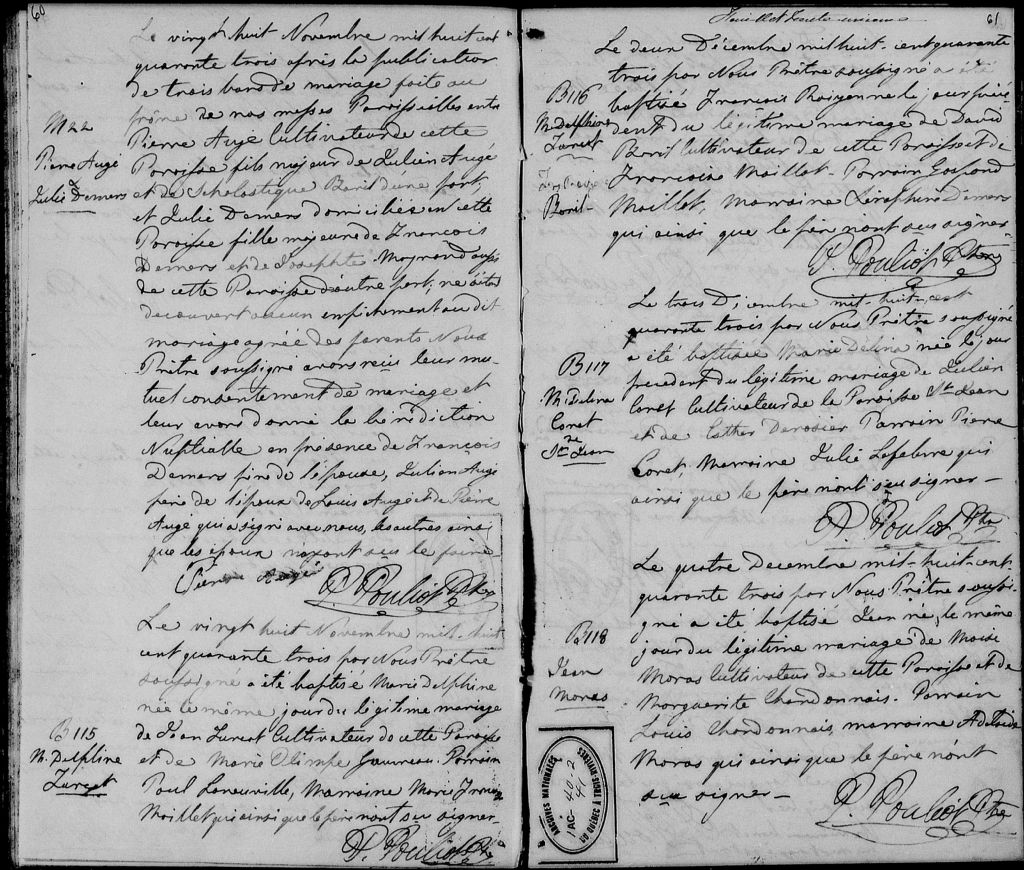 60
Le vingt huit Novembre mil huit cent
quarante trois après la publication
de trois bans de mariage faite au
prône de nos messes Paroissielles entre
M22
Pierre Augé Cultivateur de cette
Pierre Augé
Paroisse fils majeur de Julien Augé
&
Julie Demers
et de Scholastique Baril d'une part;
et Julie Demers domiciliés en cette
Paroisse fille majeure de François
Demers et de Josephte
de cette Paroisse d'autre part; ne s'étant
découvert aucun empêchement au dit
mariage agréé des parents Nous
Prêtre soussigné avons reçu leur mu-
tuel consentement de mariage et
leur avons donné la bénédiction
Nuptialle en présence de François
Demers père de l'épouse, Julien Augé
père de l'époux de Louis Augé et de Pierre
Augé qui a signé avec nous, les autres ainsi
que les époux n'ayant su le faire
Pierre Augé
P. Pouliot Ptre
Le vingt huit Novembre mil huit
cent quarante trois par Nous Prêtre
soussigné a été baptisé Marie Delphine
née le même jour du légitime mariage
B115
de Jean Turcot Cultivateur de cette Paroisse
M. Delphine
Turcot
et de Marie Olimpe Gauvreau Parrain
Paul Laneuville, Marraine Marie
Maillet qui ainsi que le père n'ont su signer
P. Pouliot Ptre
61
Feuillet trente unième
Le deux Décembre mil huit-cent quarante
trois par Nous Prêtre soussigné a été
B116
baptisé François né le jour précé-
M. Delphine
Turcot
dent du légitime mariage de David
Baril Cultivateur de cette Paroisse et de
Baril
Françoise Maillot - Parrain
Maillet, Marraine Séraphine Demers
qui ainsi que le père n'ont su signer
P. Pouliot Ptre
Le trois Décembre mil-huit-cent
quarante trois par Nous Prêtre soussigné
a été battisée Marie Délina née le jour
B117
précédent du légitime mariage de Julien
M. Delina
Coret
Ste Jean
Coret Cultivateur de la Paroisse St Jean
et de Esther Derosier Parrain Pierre
Coret, Marraine Julie Lefebvre qui
ainsi que le père n'ont su signer -
P. Pouliot Ptre
Le quatre Décembre mil-huit-cent-
quarante trois par Nous Prêtre soussi-
gné a été baptisé Jean né, le même
B118
jour du légitime mariage de Moise
Jean
Moras
Moras Cultivateur de cette Paroisse et de
Marguerite Chardonnais. Parrain
Louis Chardonnais, marraine
Moras qui ainsi que le père n'ont
su signer -
P. Pouliot Ptre
ARCHIVES NATIONALES
1AC-40-2
41
DU QUÉBEC À TROIS-RIVIÈRES